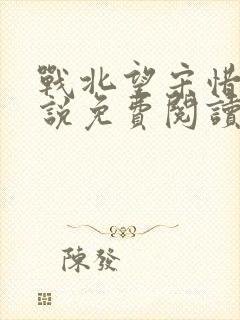 戰北望宋惜
說免費閱讀
陳發